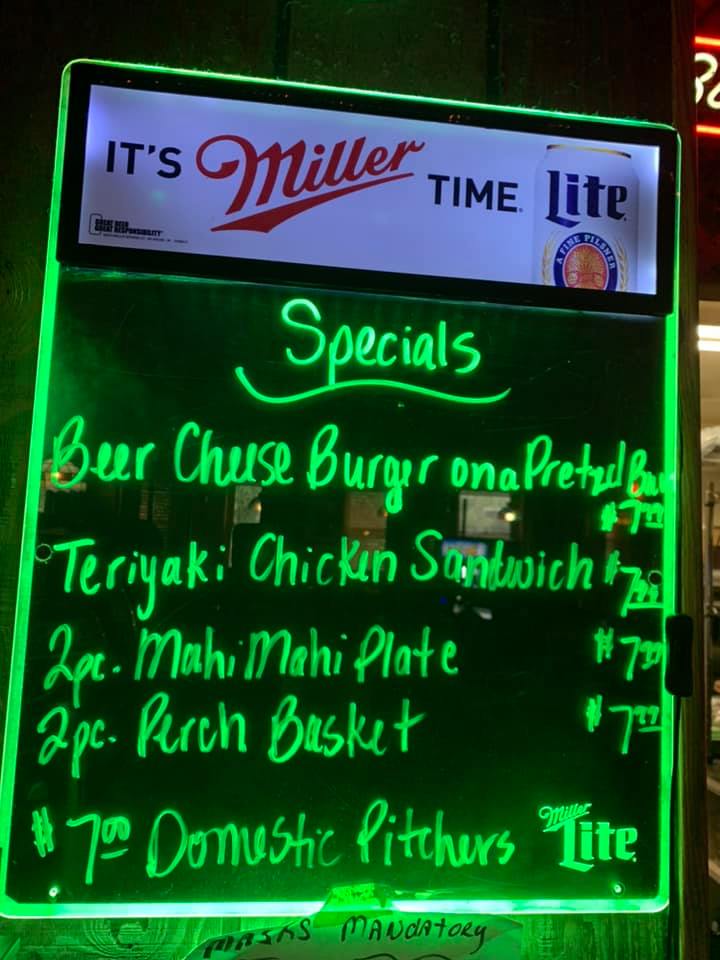 IT'S Miller TIME. Lite
GREAT BEER
GREAT RESPONSIBILITY
A FINE PILSNER
Specials
Beer Cheese Burger on a Pretzel Bun
$7.99
Teriyaki Chicken Sandwich $7.99
2pc. Mahi Mahi Plate $7.99
2pc. Perch Basket $7.99
$7.00 Domestic Pitchers Miller Lite
MASKS MANDATORY